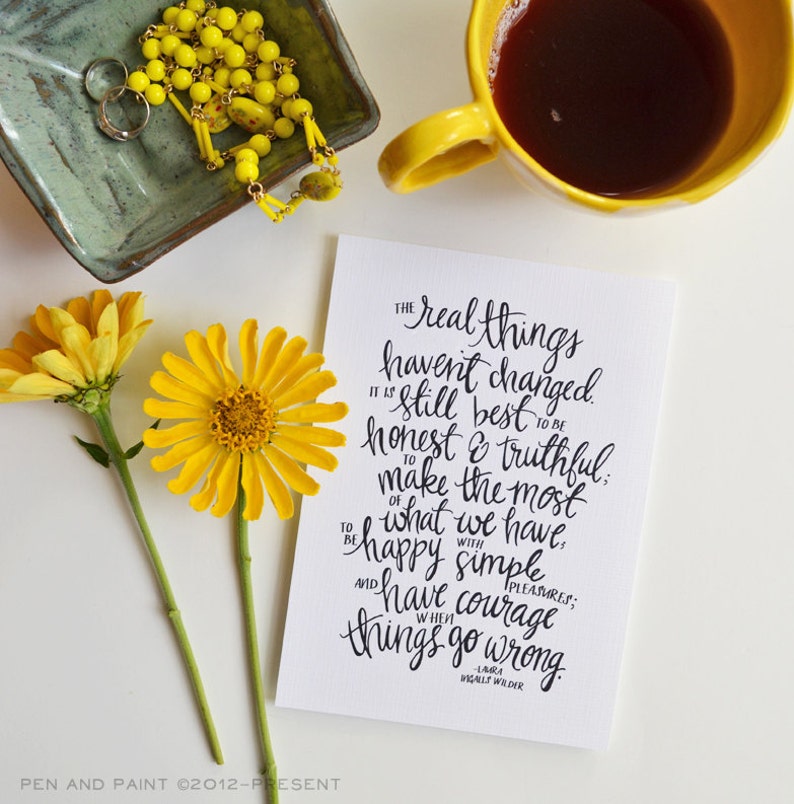 THE real things
haven't changed.
IT IS still best TO BE
honest & truthful;
TO make the most
OF what we have;
TO BE happy WITH simple PLEASURES;
AND have courage
WHEN things go wrong.
-LAURA
INGALLS WILDER
PEN AND PAINT ©2012-PRESENT